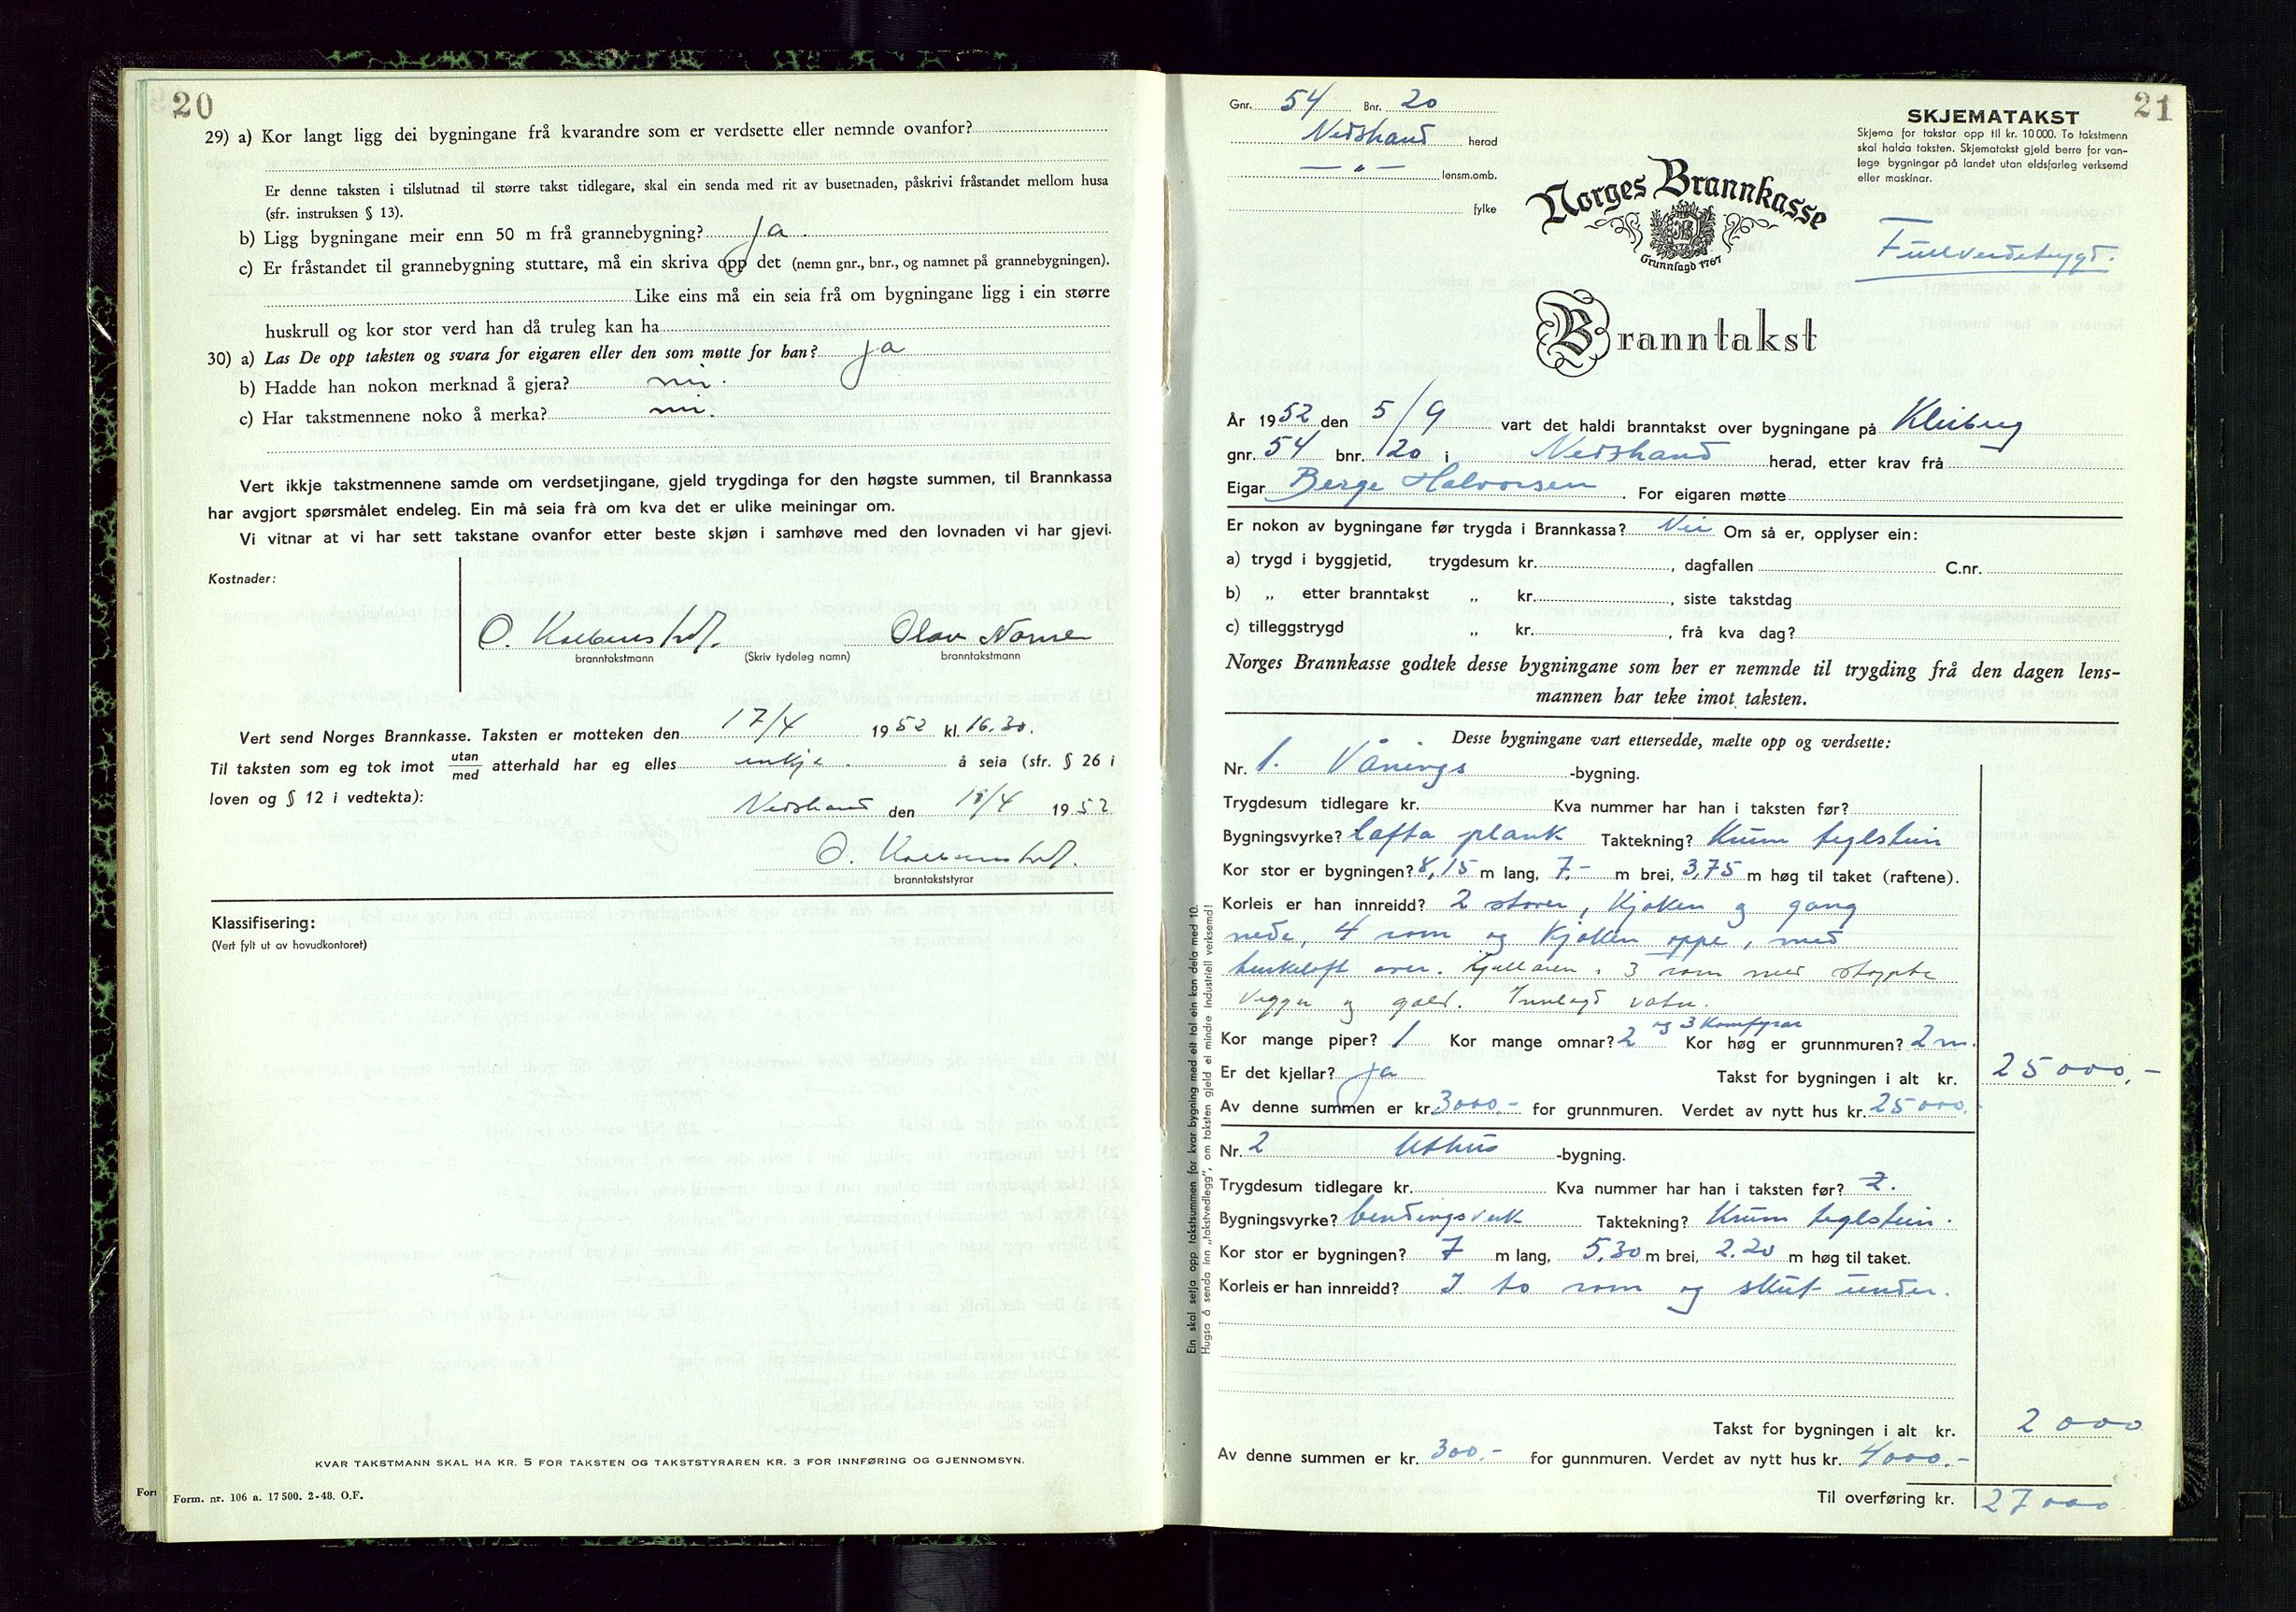 20
29) a) Kor langt ligg dei bygningane frå kvarandre som er verdsette eller nemnde ovanfor?
Er denne taksten i tilslutnad til større takst tidlegare, skal ein senda med rit av busetnaden, påskrivi fråstandet mellom husa
(sfr. instruksen § 13).
b) Ligg bygningane meir enn 50 m frå grannebygning? Ja.
c) Er fråstandet til grannebygning stuttare, må ein skriva opp det (nemn gnr., bnr., og namnet på grannebygningen).
Like eins må ein seia frå om bygningane ligg i ein større
huskrull og kor stor verd han då truleg kan ha
30) a) Las De opp taksten og svara for eigaren eller den som møtte for han? ja
b) Hadde han nokon merknad å gjera? nei.
c) Har takstmennene noko å merka? nei.
Vert ikkje takstmennene samde om verdsetjingane, gjeld trygdinga for den høgste summen, til Brannkassa
har avgjort spørsmålet endeleg. Ein må seia frå om kva det er ulike meiningar om.
Vi vitnar at vi har sett takstane ovanfor etter beste skjøn i samhøve med den lovnaden vi har gjevi.
Kostnader:
O. Olav
branntakstmann (Skriv tydeleg namn) branntakstmann
Vert send Norges Brannkasse. Taksten er motteken den 17/4 1952 kl. 16.30.
Til taksten som eg tok imot utan/med atterhald har eg elles inkje. å seia (sfr. § 26 i
loven og § 12 i vedtekta):
Nedstrand den /4 1952
O.
branntakststyrar
Klassifisering:
(Vert fylt ut av hovudkontoret)
KVAR TAKSTMANN SKAL HA KR. 5 FOR TAKSTEN OG TAKSTSTYRAREN KR. 3 FOR INNFØRING OG GJENNOMSYN.
Form. nr. 106 a. 17 500. 2-48. O.F.
21
Gnr. 54 Bnr. 20
Nedstrand herad
— " — lensm.omb.
fylke
SKJEMATAKST
Skjema for takstar opp til kr. 10 000. To takstmenn
skal halda taksten. Skjematakst gjeld berre for van-
lege bygningar på landet utan eldsfarleg verksemd
eller maskinar.
Norges Brannkasse
Grunnlagd 1767
Fullverdetrygd.
Branntakst
År 1952 den 5/9 vart det haldi branntakst over bygningane på Kleiberg
gnr. 54 bnr. 20 i Nedstrand herad, etter krav frå
Eigar Berge Halvorsen. For eigaren møtte
Er nokon av bygningane før trygda i Brannkassa? Nei Om så er, opplyser ein:
a) trygd i byggjetid, trygdesum kr. , dagfallen C.nr.
b) „ etter branntakst „ kr. , siste takstdag
c) tilleggstrygd „ kr. , frå kva dag?
Norges Brannkasse godtek desse bygningane som her er nemnde til trygding frå den dagen lens-
mannen har teke imot taksten.
Desse bygningane vart ettersedde, mælte opp og verdsette:
Nr. 1. Vånings -bygning.
Trygdesum tidlegare kr. Kva nummer har han i taksten før?
Bygningsvyrke? lafta plank Taktekning? Krum teglstein
Kor stor er bygningen? 8,15 m lang, 7,- m brei, 3,75 m høg til taket (raftene).
Korleis er han innreidd? 2 stover, kjøken og gang
nede, 4 rom og kjøken oppe, med
loft over. Kjellaren i 3 rom med støypte
vegger og golv. Innlagd vatn.
Kor mange piper? 1 Kor mange omnar? 2 og 3 komfyrar Kor høg er grunnmuren? 2 m.
Er det kjellar? Ja Takst for bygningen i alt kr. 25 000,-
Av denne summen er kr. 3000,- for grunnmuren. Verdet av nytt hus kr. 25 000,-
Nr. 2 Uthus -bygning.
Trygdesum tidlegare kr. Kva nummer har han i taksten før? 2.
Bygningsvyrke? bindingsverk Taktekning? Krum teglstein.
Kor stor er bygningen? 7 m lang, 5,30 m brei, 2.20 m høg til taket.
Korleis er han innreidd? I to rom og skut under.
Takst for bygningen i alt kr. 2 000
Av denne summen er kr. 300.- for gunnmuren. Verdet av nytt hus kr. 4000.-
Til overføring kr. 27 000
Ein skal setja opp takstsummen for kvar bygning med eit tal ein kan dela med 10.
Hugsa å senda inn „takstvedlegg", om taksten gjeld ei mindre industriell verksemd!